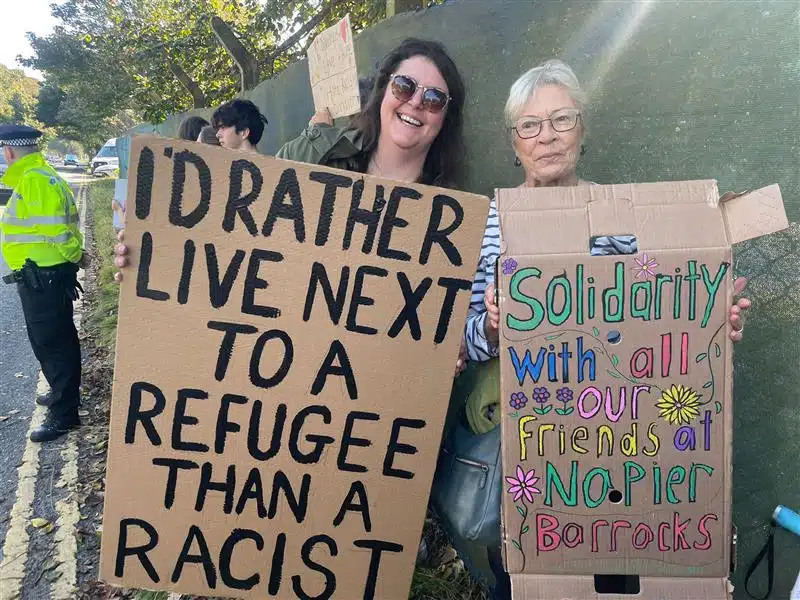 I'D RATHER
LIVE NEXT
TO A
REFUGEE
THAN A
RACIST
Solidarity
with all
our
friends at
Napier
Barrocks